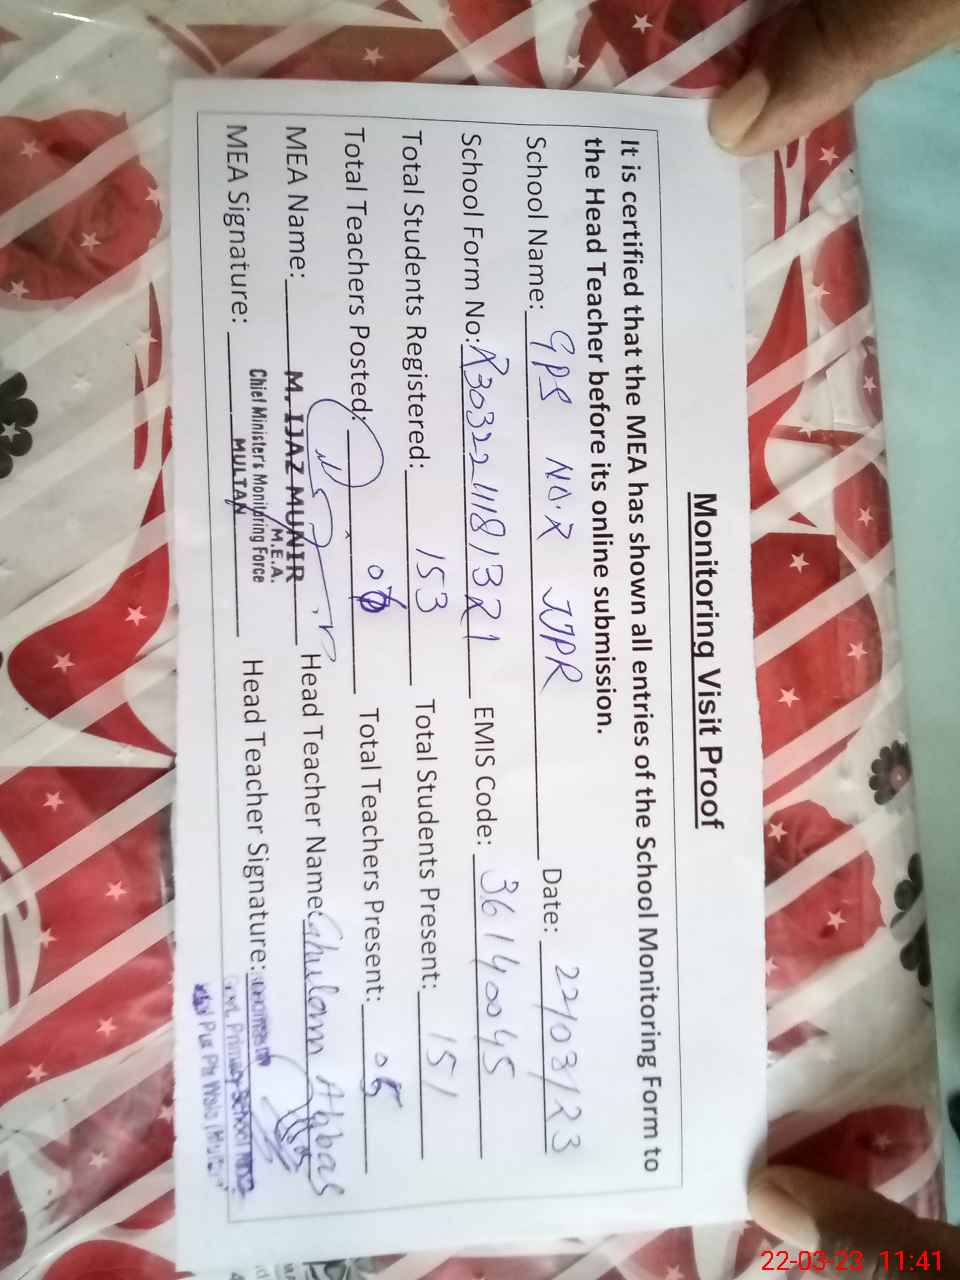 Monitoring Visit Proof
It is certified that the MEA has shown all entries of the School Monitoring Form to
the Head Teacher before its online submission.
School Name: GPS NO.2 JJPR Date: 22/03/23
School Form No: EMIS Code: 36140045
Total Students Registered: 153 Total Students Present: 151
Total Teachers Posted: 06 Total Teachers Present: 05
MEA Name: M. IJAZ MUNIR Head Teacher Name: Ghulam Abbas
M.E.A.
MEA Signature: Chief Minister's Monitoring Force Head Teacher Signature:
MULTAN Govt. Primary School
Pir Wala
22-03-23 11:41